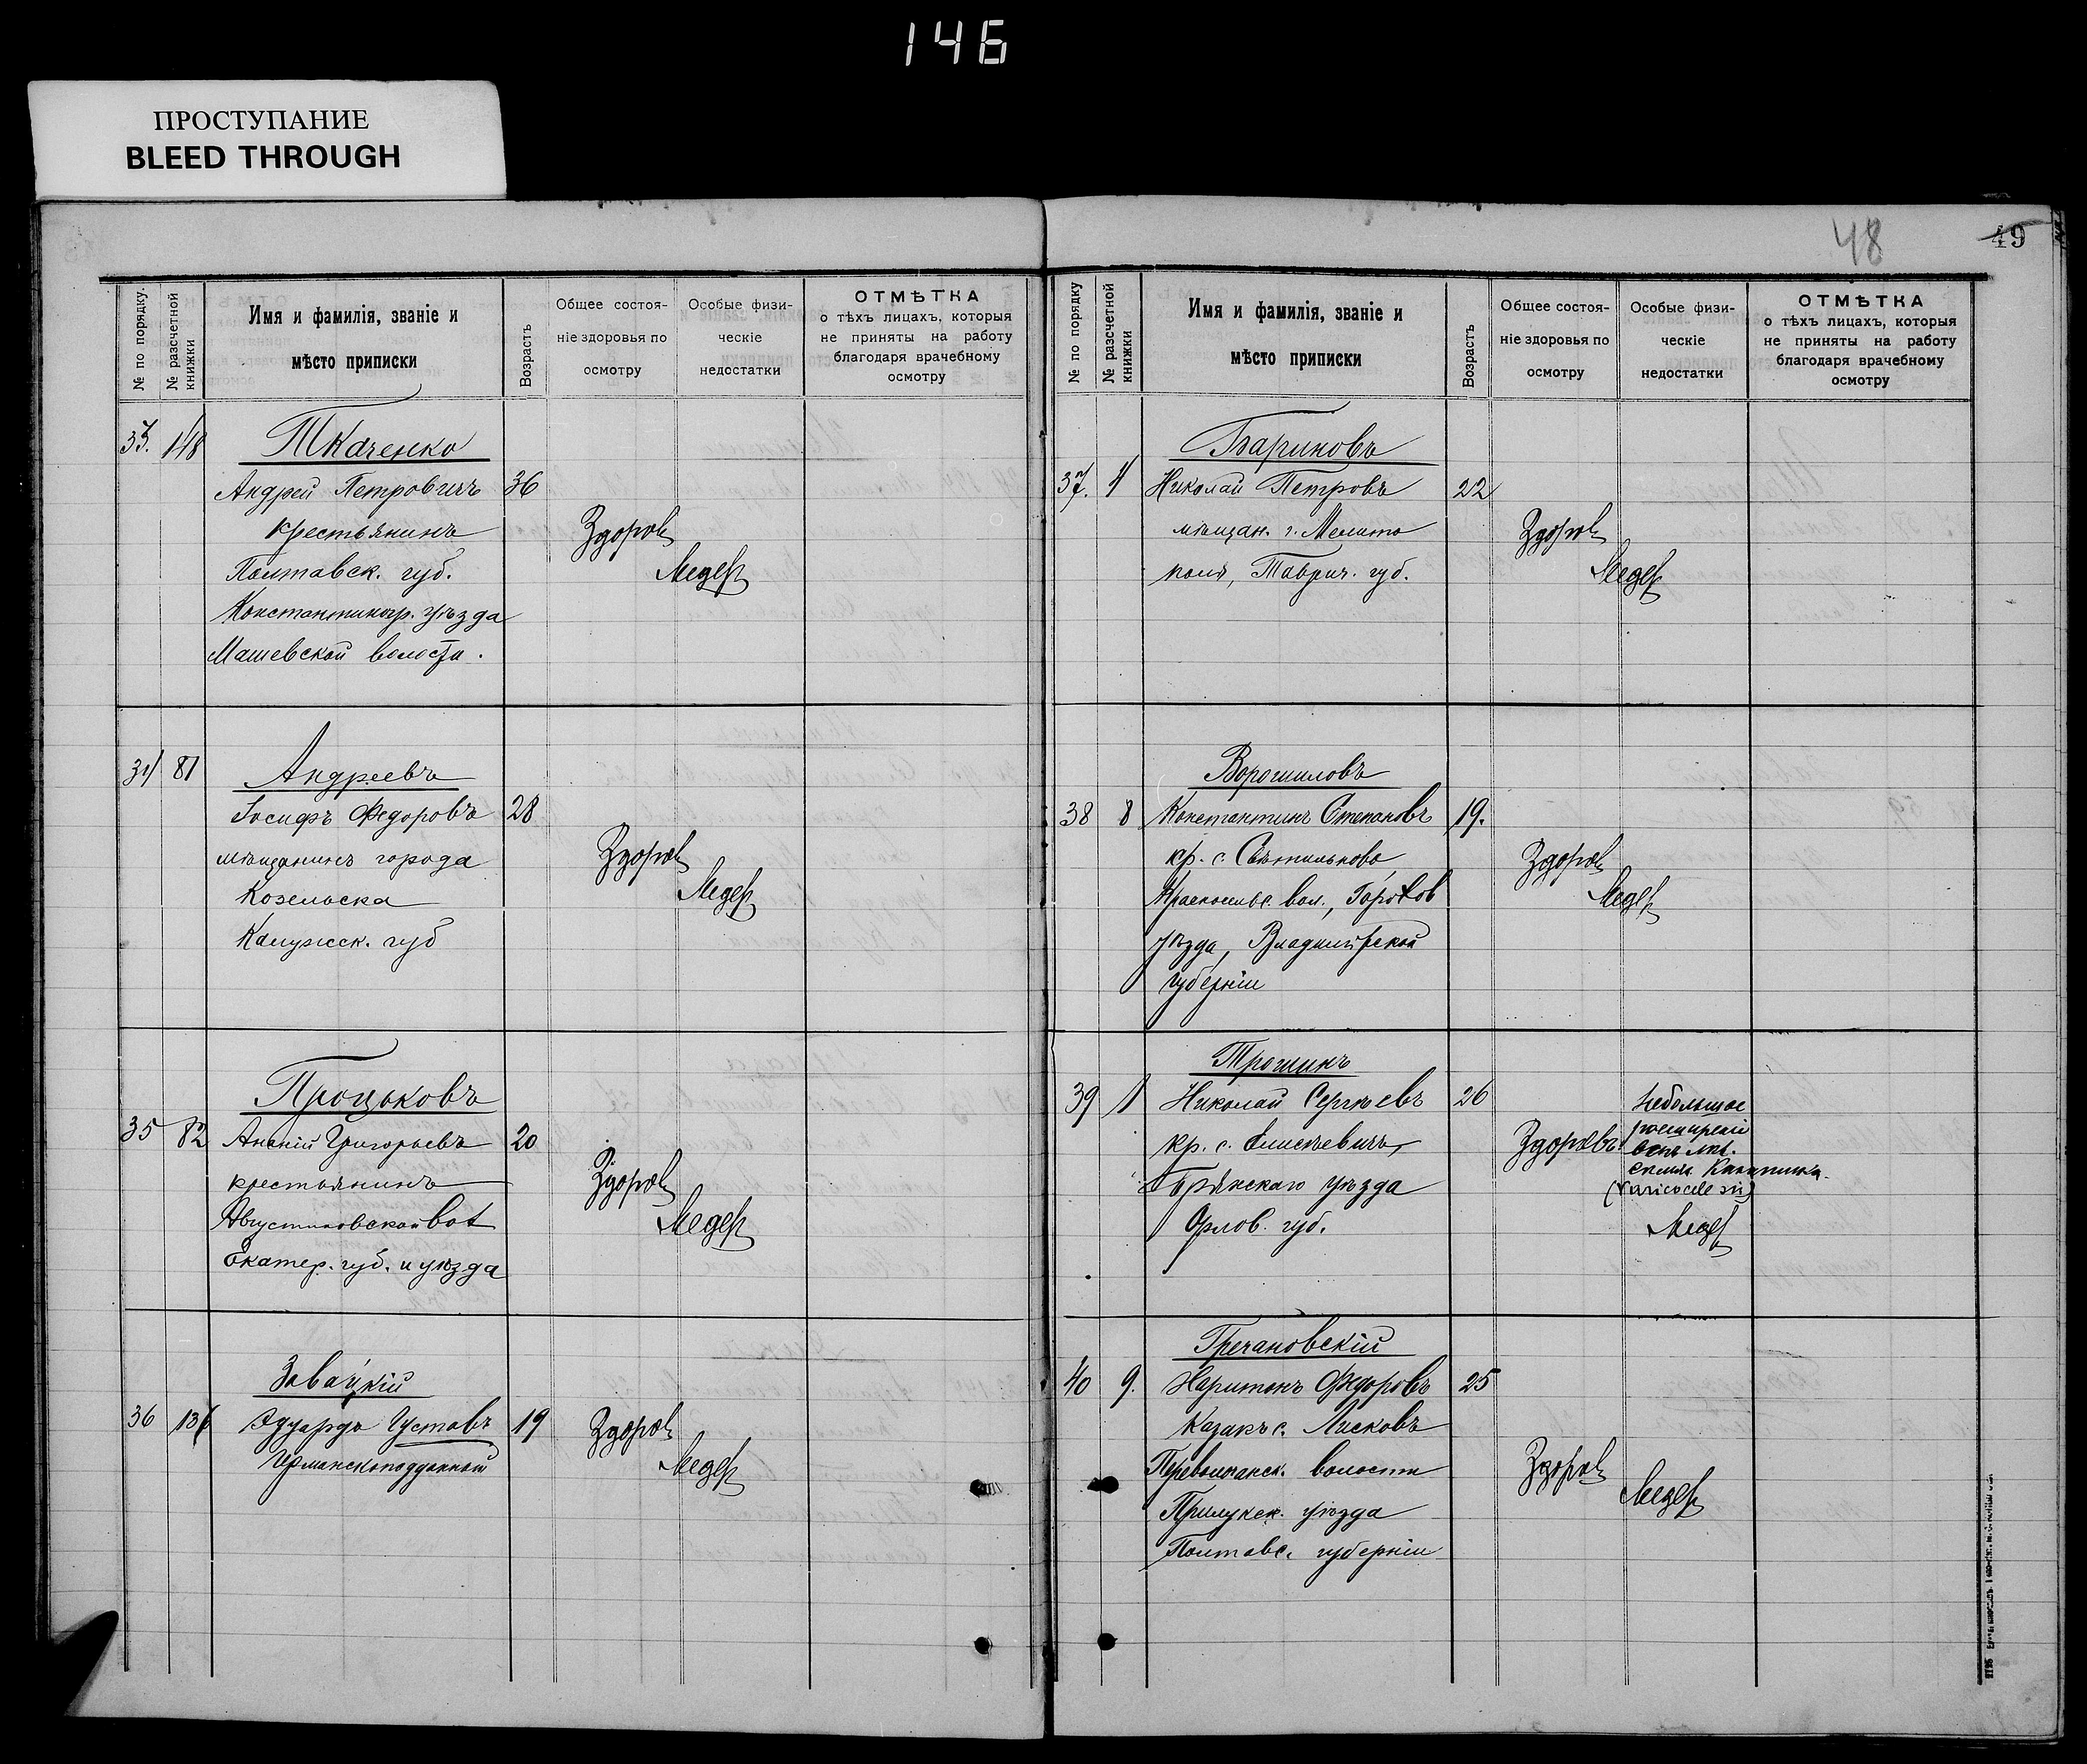 146
ПРОСТУПАНИЕ
BLEED THROUGH
№ по порядку.
№ разсчетной книжки
Имя и фамилія, званіе и
мѣсто приписки
Возрастъ
Общее состоя-
ніе здоровья по
осмотру
Особые физи-
ческіе
недостатки
ОТМѢТКА
о тѣхъ лицахъ, которыя
не приняты на работу
благодаря врачебному
осмотру
33. 148 Ткаченко
Андрей Петровичъ 36
крестьянинъ Здоровъ
Полтавск. губ. Медер
Константиногр. уѣзда
Машевской волости.
34 81 Андреевъ
Іосифъ Федоровъ 28
мѣщанинъ города Здоровъ
Козельска Медер
Калужск. губ
Процьковъ
35 82 Ананій Григорьевъ 20
крестьянинъ Здоровъ
Августиновской вол Медер
Екатер. губ. и уѣзда
Завацкій
36 136 Эдуардъ Густавъ 19 Здоровъ
Германскоподданный Медер
48
49
№ по порядку
№ разсчетной книжки
Имя и фамилія, званіе и
мѣсто приписки
Возрастъ
Общее состоя-
ніе здоровья по
осмотру
Особые физи-
ческіе
недостатки
ОТМѢТКА
о тѣхъ лицахъ, которыя
не приняты на работу
благодаря врачебному
осмотру
Бариновъ
37. 4 Николай Петровъ 22
мѣщан. г. Мелито Здоровъ
поля, Таврич. губ. Медер
Ворошиловъ
38 8 Константинъ Степановъ 19.
кр. с. Свѣтильново Здоровъ
Красносельс. вол., Горохов Медер
уѣзда, Владимірской
губерніи
Трошинъ
39 1 Николай Сергѣевъ 26 Небольшое
кр. с. Елисѣевичъ Здоровъ расширеніе
венъ лѣв.
Брянскаго уѣзда (varicocele sin)
Орлов. губ. Медер
Гречановскій
40 9. Харитонъ Федоровъ 25
Казакъ с. Лисковъ
Переволчанск. волости Здоровъ
Прилукск. уѣзда Медер
Полтавс. губерніи